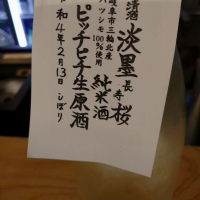 清酒
淡墨桜
長寿
岐阜市三輪北産
ハツシモ100%使用
純米酒
ピッチピチ生原酒
令和4年2月13日しぼり